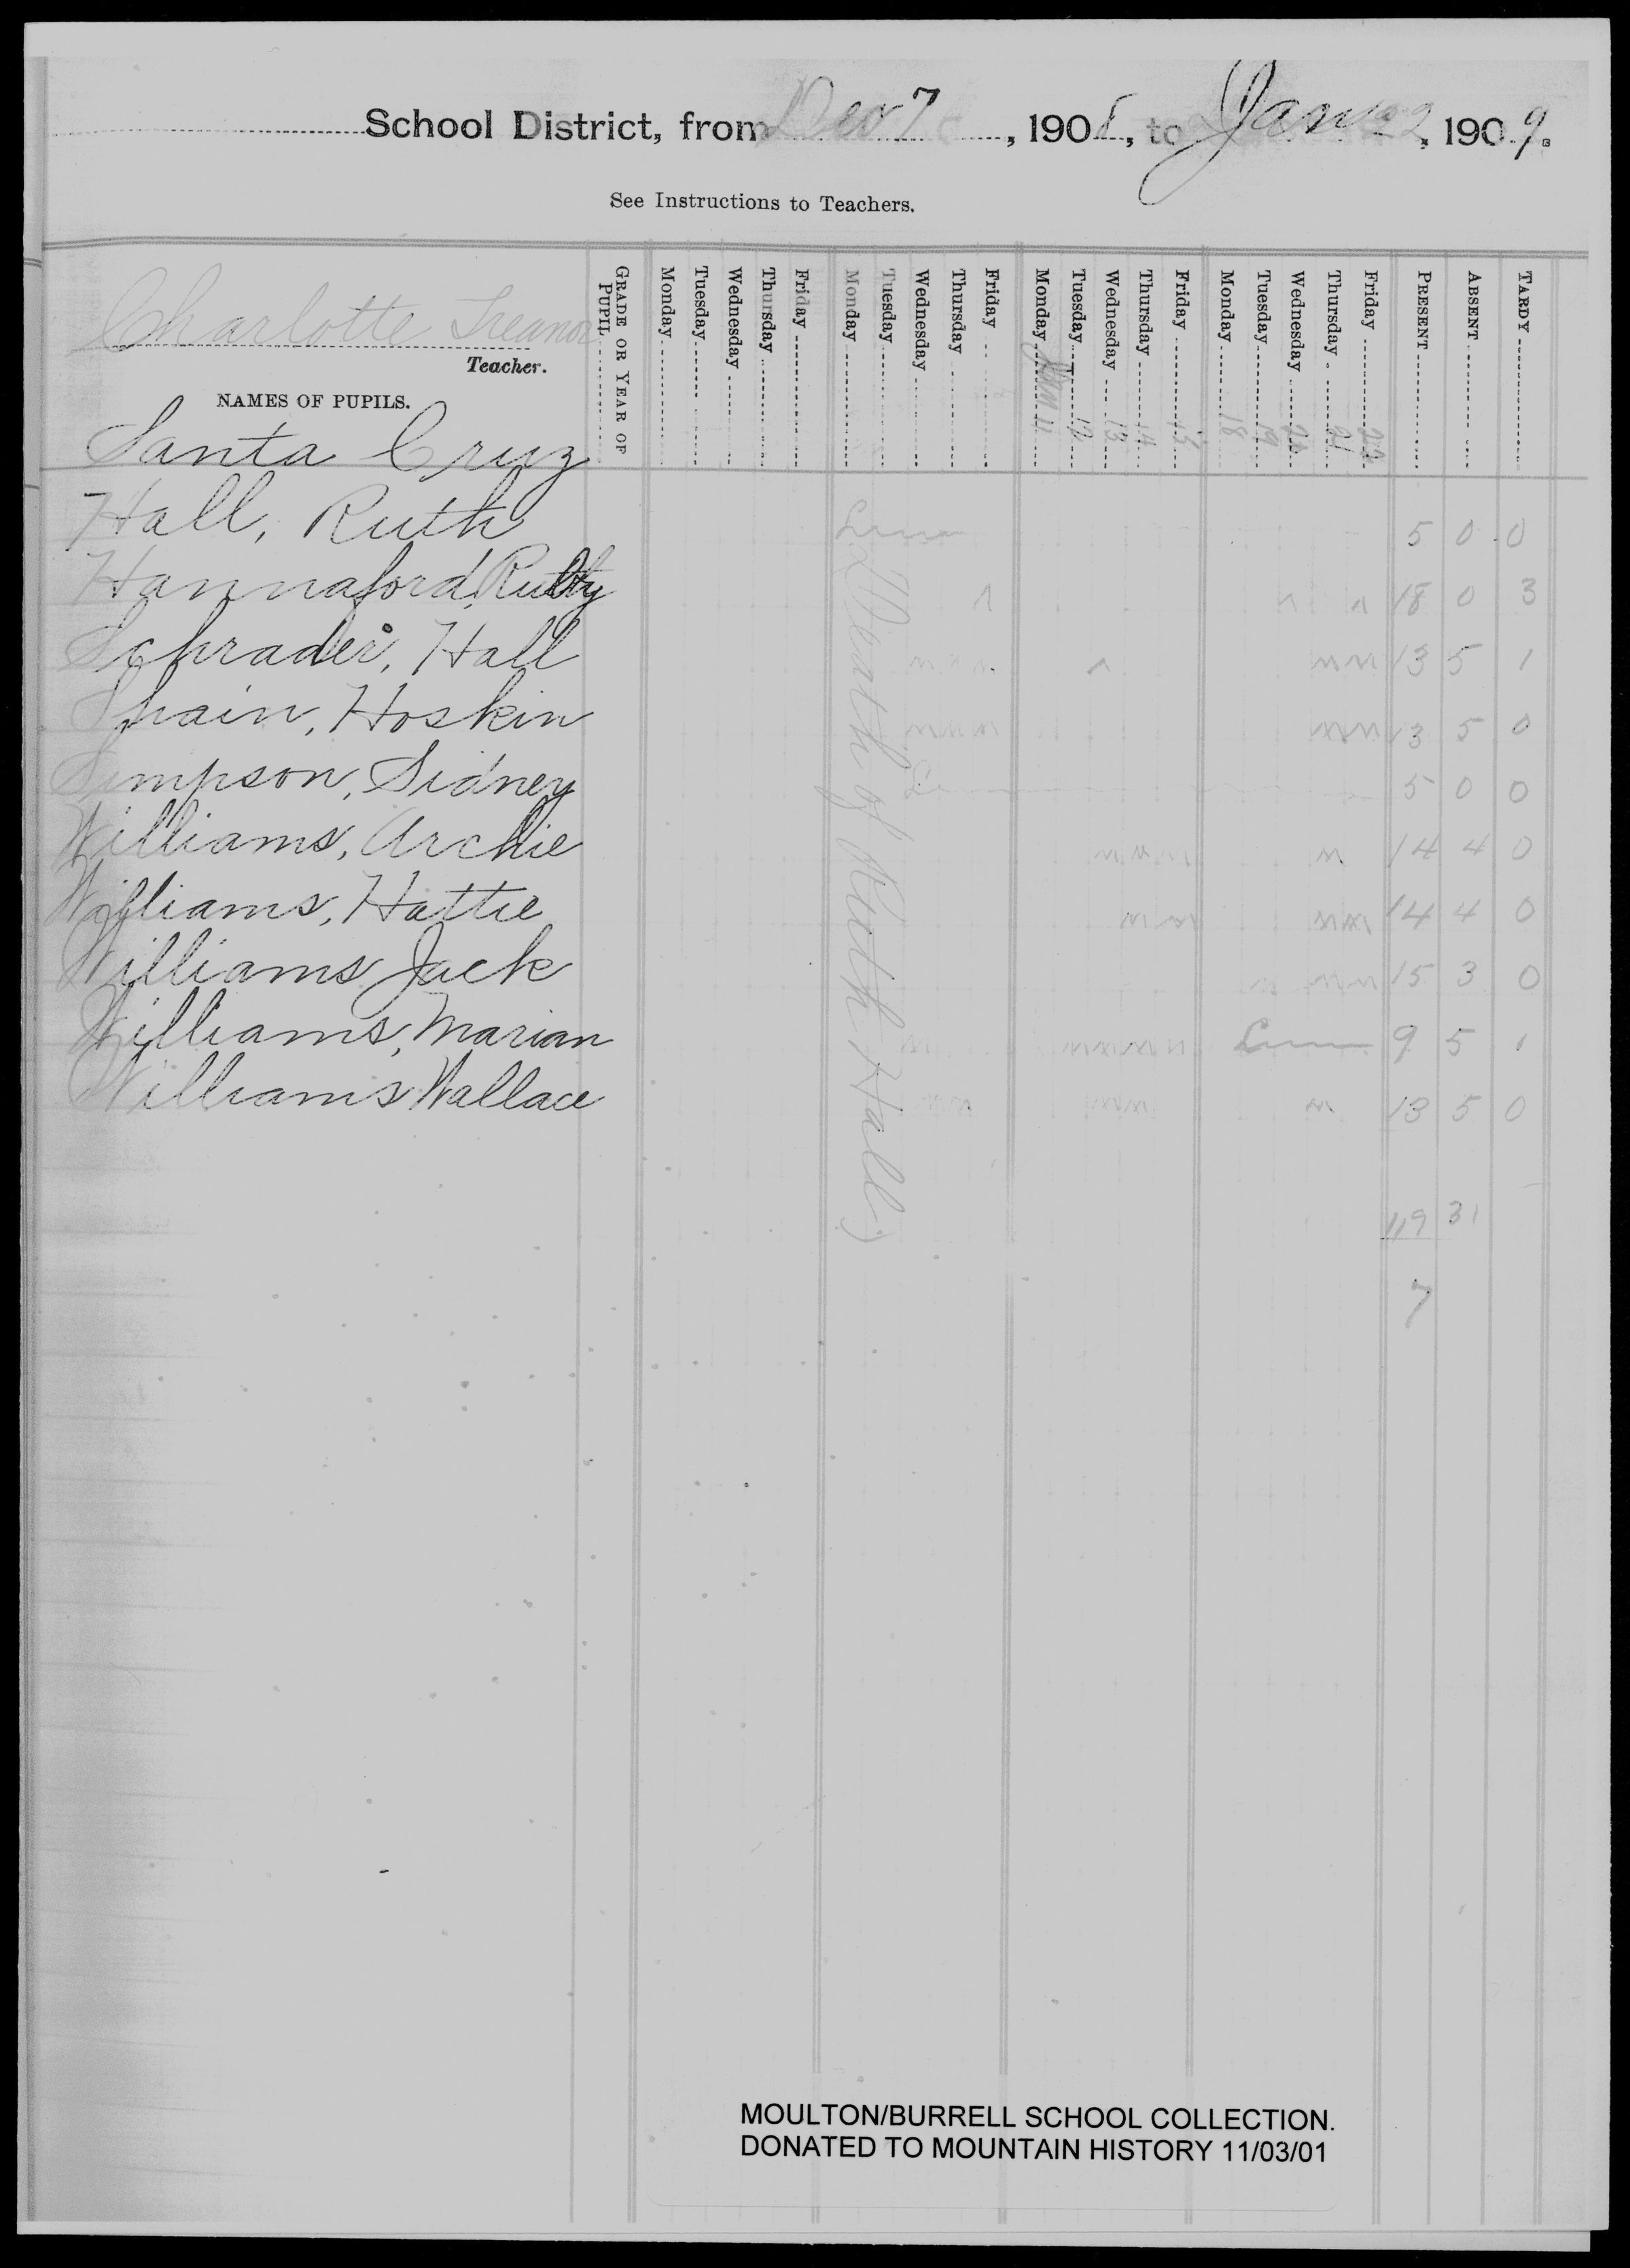 School District, from Dec 7, 1908, to Jan 22, 1909.
See Instructions to Teachers.
Charlotte Treanor
Teacher.
NAMES OF PUPILS.
GRADE OR YEAR OF PUPIL
Monday Tuesday Wednesday Thursday Friday Monday Tuesday Wednesday Thursday Friday Monday Tuesday Wednesday Thursday Friday Monday Tuesday Wednesday Thursday Friday PRESENT ABSENT TARDY
Jan 11 12 13 14 15 18 19 20 21 22
Santa Cruz
Hall, Ruth 5 0 0
Hannaford, Ruby 18 0 3
Schrader, Hall 13 5 1
Spain, Hoskin 13 5 0
Simpson, Sidney 5 0 0
Williams, Archie 14 4 0
Williams, Hattie 14 4 0
Williams Jack 15 3 0
Williams, Marian 9 5 1
Williams Wallace 13 5 0
(Death of Ruth Hall)
119 31
7
MOULTON/BURRELL SCHOOL COLLECTION.
DONATED TO MOUNTAIN HISTORY 11/03/01